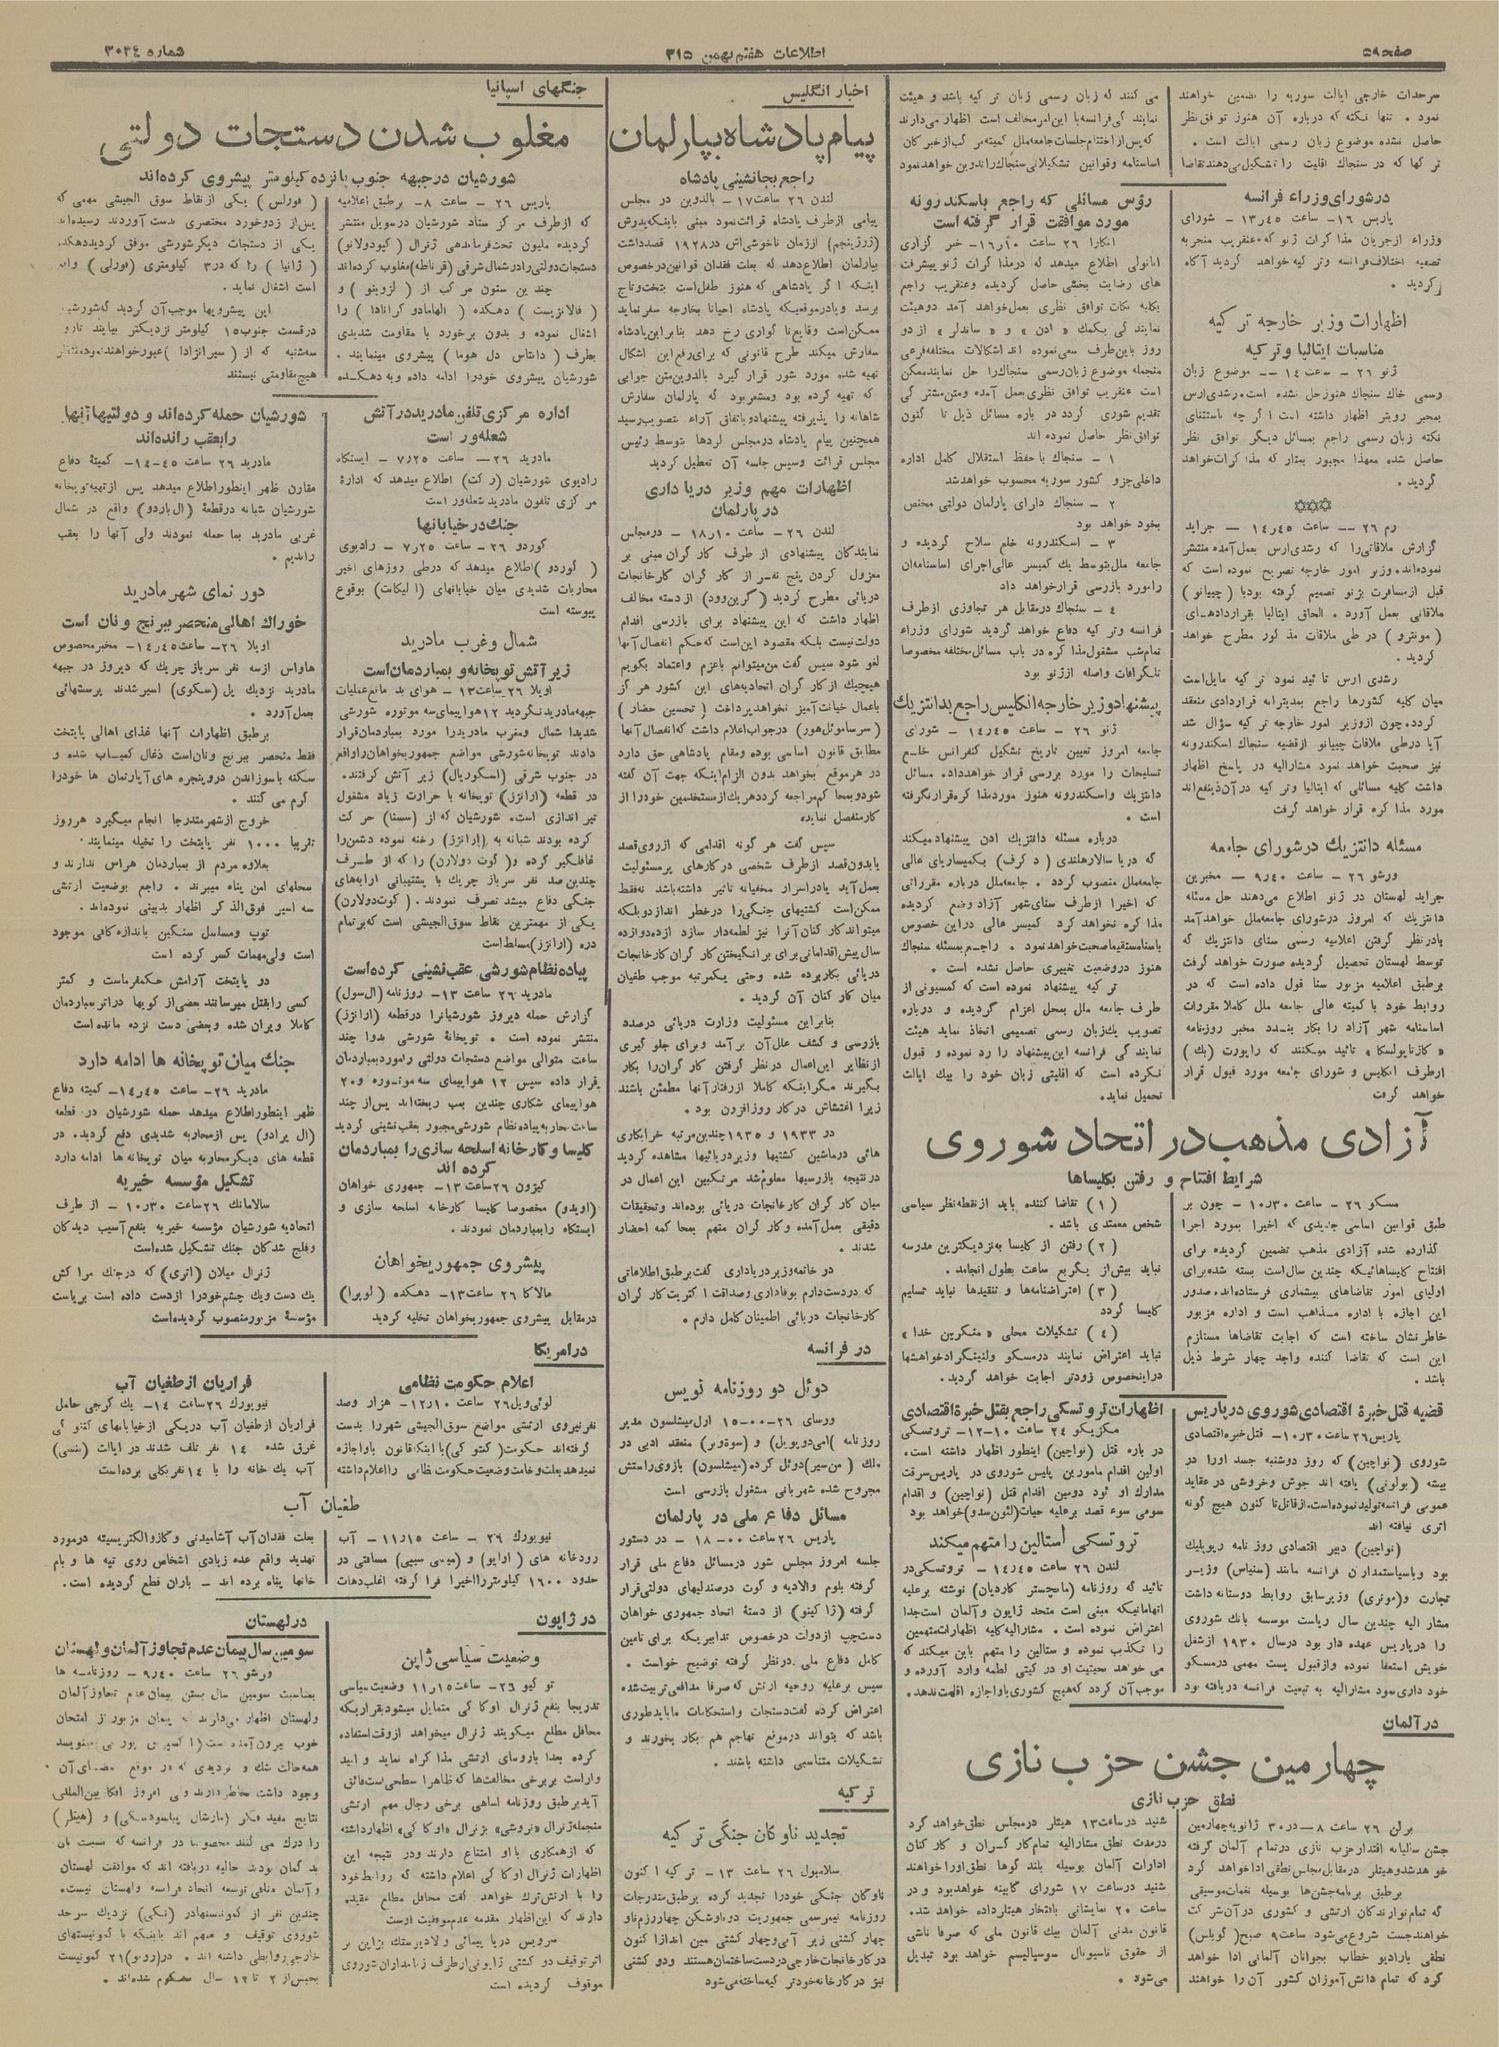 صفحه ۵۹
اطلاعات هفتم بهمن ۳۱۵
شماره ۳۰۳۴
سرحدات خارجی ایالت سوریه را تضمین خواهند
نمود . تنها نکته که درباره آن هنوز توافق نظر
حاصل نشده موضوع زبان رسمی ایالت است .
تر کها که در سنجاك اقلیت را تشکیل می‌دهند تقاضا
می کنند که زبان رسمی زبان تر کیه باشد و هیئت
نمایند گی فرانسه با این امر مخالف است اظهار می‌دارند
که پس از اختتام جلسات جامعه ملل کمیته مر کب از خبر کان
اساسنامه و قوانین تشکیلاتی سنجاك را تدوین خواهد نمود
درشورای وزراء فرانسه
پاریس ۱۶- ساعت ۱۳ر۴۵ - شورای
وزراء از جریان مذا کرات ژنو که عنقریب منجر به
تصفیه اختلاف فرانسه و تر کیه خواهد گردید آگاه
گردید .
اظهارات وزیر خارجه تر کیه
مناسبات ایتالیا و ترکیه
ژنو ۲۶ - ساعت ۱۴ -- موضوع زبان
رسمی خاك سنجاك هنوز حل نشده است. رشدی ارس
بمخبر رویتر اظهار داشته است ا گر چه باستثنای
نکته زبان رسمی راجع بمسائل دیگر توافق نظر
حاصل شده معهذا مجبور بمتار که مذا کرات خواهد
گردید .
رم ۲۶ -- ساعت ۱۴ر۴۵ -- جراید
گزارش ملاقاتی را که رشدی ارس بعمل آمده منتشر
نموده‌اند. وزیر امور خارجه تصریح نموده است که
قبل از مسافرت بژنو تصمیم گرفته بود با ( چیانو )
ملاقاتی بعمل آورد . الحاق ایتالیا بقراردادهای
( مونترو ) در طی ملاقات مذ کور مطرح خواهد
گردید .
رشدی ارس تا ئید نمود تر کیه مایل است
میان کلیه کشورها راجع بمدیترانه قراردادی منعقد
گردد. چون از وزیر امور خارجه تر کیه سؤال شد
آیا درطی ملاقات چیانو از قضیه سنجاك اسکندرونه
نیز صحبت خواهد نمود مشارالیه در پاسخ اظهار
داشت کلیه مسائلی که ایتالیا و تر کیه در آن ذینفع‌اند
مورد مذا کره قرار خواهد گرفت
مسئله دانتزیك در شورای جامعه
ورشو ۲۶ - ساعت ۹ر۴۰ - مخبرین
جراید لهستان در ژنو اطلاع می دهند حل مسئله
دانتزیك که امروز درشورای جامعه ملل خواهد آمد
بادر نظر گرفتن اعلامیه رسمی سنای دانتزیك که
توسط لهستان تحصیل گردیده صورت خواهد گرفت
برطبق اعلامیه مزبور سنا قول داده است که در
روابط خود با کمیته عالی جامعه ملل کاملا مقررات
اساسنامه شهر آزاد را بکار بندد مخبر روزنامه
ازطرف انگلیس و شورای جامعه مورد قبول قرار
خواهد گرفت
رؤس مسائلی که راجع باسکندرونه
مورد موافقت قرار گرفته است
انکارا ۲۶ ساعت ۱۶ر۱۰ - خبر گزاری
اناتولی اطلاع میدهد که درمذا کرات ژنو پیشرفت
های رضایت بخشی حاصل گردیده و عنقریب راجع
بکلیه نکات توافق نظری بعمل خواهد آمد دو هیئت
نمایند گی بکمك « ادن » و « ساندلر » از دو
روز باین طرف سعی نموده اند اشکالات مختلفه فرعی
منجمله موضوع زبان رسمی سنجاك را حل نمایند ممکن
است عنقریب توافق نظری بعمل آمده و متن مشتر کی
تقدیم شوری گردد در باره مسائل ذیل تا کنون
توافق نظر حاصل نموده اند
۱ - سنجاك با حفظ استقلال کامل اداره
داخلی جزو کشور سوریه محسوب خواهد شد
۲ - سنجاك دارای پارلمان دولتی مختص
بخود خواهد بود
۳ - اسکندرونه خلع سلاح گردیده و
جامعه ملل توسط یك کمیسر عالی اجرای اساسنامه‌ان
را مورد بازرسی قرار خواهد داد
۴ - سنجاك در مقابل هر تجاوزی از طرف
فرانسه و تر کیه دفاع خواهد گردید شورای وزراء
تمام شب مشغول مذا کره در باب مسائل مختلفه مخصوصا
تلگرافات واصله از ژنو بود
پیشنهاد وزیر خارجه انگلیس راجع بدانتزیك
ژنو ۲۶ - ساعت ۱۴ر۴۵ - شورای
جامعه امروز تعیین تاریخ تشکیل کنفرانس خلع
تسلیحات را مورد بررسی قرار خواهد داد. مسائل
دانتزیك و اسکندرونه هنوز مورد مذا کره قرار نگرفته
است .
درباره مسئله دانتزیك ادن پیشنهاد میکند
که دریا سالار هلندی ( د گرف ) بکمیساریای عالی
جامعه ملل منصوب گردد . جامعه ملل درباره مقرراتی
که اخیرا ازطرف سنای شهر آزاد وضع گردیده
مذا کره نخواهد کرد کمیسر عالی دراین خصوص
باسنا مستقیما صحبت خواهد نمود . راجع بمسئله سنجاك
هنوز دروضعیت تغییری حاصل نشده است .
تر کیه پیشنهاد نموده است که کمسیونی از
طرف جامعه ملل بمحل اعزام گردیده و درباره
تصویب یك زبان رسمی تصمیمی اتخاذ نماید هیئت
نمایند گی فرانسه این پیشنهاد را رد نموده و قبول
نکرده است که اقلیتی زبان خود را بیك ایالت
تحمیل نماید.
آزادی مذهب در اتحاد شوروی
شرایط افتتاح و رفتن بکلیساها
مسکو ۲۶ - ساعت ۱۰ر۳۰ - چون بر
طبق قوانین اساسی جدیدی که اخیرا بمورد اجرا
گذارده شده آزادی مذهب تضمین گردیده برای
افتتاح کلیساهائیکه چندین سال است بسته شده برای
اولیای امور تقاضاهای بیشماری فرستاده‌اند. صدور
این اجازه با اداره مذاهب است و اداره مزبور
خاطرنشان ساخته است که اجابت تقاضاها مستلزم
این است که تقاضا کننده واجد چهار شرط ذیل
باشد .
( ۱ ) تقاضا کننده باید از نقطه نظر سیاسی
شخص معتمدی باشد .
( ۲ ) رفتن از کلیسا به نزدیکترین مدرسه
نباید بیش از یکربع ساعت بطول انجامد .
( ۳ ) اعتراضنامه‌ها و تنقیدها نباید تسلیم
کلیسا گردد
( ۴ ) تشکیلات محلی « منکرین خدا »
نباید اعتراض نمایند درمسکو و لنینگراد خواهشها
دراینخصوص زودتر اجابت خواهد گردید .
قضیه قتل خبرهٔ اقتصادی شوروی در پاریس
پاریس ۲۶ ساعت ۱۰ر۳۰ - قتل خبره اقتصادی
شوروی ( نواچین) که روز دوشنبه جسد اورا در
بیشه (بولونی) یافته اند جوش و خروشی در عقاید
عمومی فرانسه تولید نموده است. از قاتل تا کنون هیچ گونه
اثری نیافته اند
(نواچین) دبیر اقتصادی روز نامه رپوبلیك
بود و باسیاستمداران فرانسه مانند وزیر
تجارت و(مونزی) وزیر سابق روابط دوستانه داشت
مشار الیه چندین سال ریاست موسسه بانك شوروی
را در پاریس عهده دار بود درسال ۱۹۳۰ از شغل
خویش استعفا نموده و از قبول پست مهمی درمسکو
خود داری نمود مشارالیه به تبعیت فرانسه در یافته بود
اظهارات تروتسکی راجع بقتل خبرهٔ اقتصادی
مکزیکو ۲۴ ساعت ۱۰-۱۲- تروتسکی
در باره قتل (نواچین) اینطور اظهار داشته است.
اولین اقدام مامورین پلیس شوروی در پاریس سرقت
مدارك او بود دومین اقدام قتل (نواچین) و اقدام
سومی سوء قصد بر علیه حیات(لئون سدو) خواهد بود
تروتسکی استالین را متهم میکند
لندن ۲۶ ساعت ۱۴ر۴۵ - تروتسکی در
تائید که روزنامه (مانچستر گاردیان) نوشته برعلیه
اتهاماتیکه مبنی است متحد ژاپون و آلمان است جدا
اعتراض نموده است . مشارالیه کلیه اظهارات متهمین
را تکذب نموده و ستالین را متهم باین میکند که
می خواهد حیثیت او در گیتی لطمه وارد آورده و
موجب آن گردد که هیچ کشوری باو اجازه اقامت ندهد.
در آلمان
چهارمین جشن حزب نازی
نطق حزب نازی
برلن ۲۶ ساعت ۸ -- در ۳۰ ژانویه چهارمین
جشن سالیانه اقتدار حزب نازی درتمام آلمان گرفته
خو هد شد و هیتلر در مقابل مجلس نطقی ادا خواهد کرد
برطبق برنامه جشن‌ها بوسیله نغمات موسیقی
که تمام نوازندگان ارتشی و کشوری در آن شر کت
خواهند جست شروع می‌شود ساعت ۹ صبح( گوبلس)
نطقی با رادیو خطاب بجوانان آلمانی ادا خواهد
کرد که تمام دانش‌آموزان کشور آن را خواهند
شنید در ساعت ۱۳ هیتلر درمجلس نطق خواهد کرد
درمدت نطق مشارالیه تمام کار گران و کار کنان
ادارات آلمان بوسیله بلند گوها نطق اورا خواهند
شنید درساعت ۱۷ شورای کابینه خواهد بود و در
ساعت ۲۰ نمایشاتی بافتخار هیتلر داده خواهد شد.
قانون مدنی آلمان بیك قانون ملی که صرفا ناشی
از حقوق ناسیونال سوسیالیسم خواهد بود تبدیل
می‌شود .
اخبار انگلیس
پیام پادشاه بپارلمان
راجع بجانشینی پادشاه
لندن ۲۶ ساعت ۱۷- بالدوین در مجلس
پیامی ازطرف پادشاه قرائت نمود مبنی باینکه پدرش
(ژرژ پنجم) اززمان ناخوشی‌اش در ۱۹۲۸ قصد داشت
بپارلمان اطلاع دهد که بعلت فقدان قوانین درخصوص
اینکه ا گر پادشاهی که هنوز طفل است بتخت و تاج
برسد و یادر موقعیکه پادشاه احیانا بخارجه سفر نماید
ممکن است وقایع نا گواری رخ دهد بنابراین پادشاه
سفارش میکند طرح قانونی که برای رفع این اشکال
تهیه شده مورد شور قرار گیرد بالدوین متن جوابی
که تهیه کرده بود ومستر بود که پارلمان سفارش
شاهانه را پذیرفته پیشنهاد و باتفاق آراء بتصویب رسید
همچنین پیام پادشاه درمجلس لردها توسط رئیس
مجلس قرائت وسپس جلسه آن تعطیل گردید
اظهارات مهم وزیر دریا داری
در پارلمان
لندن ۲۶ - ساعت ۱۸ر۱۰ - درمجلس
نمایند کان پیشنهادی از طرف کار گران مبنی بر
معزول کردن پنج نفر از کار گران کارخانجات
دریائی مطرح گردید (گرین‌وود) از دسته مخالف
اظهار داشت که این پیشنهاد برای بازرسی اقدام
دولت نیست بلکه مقصود این است که حکم انفصال آنها
لغو شود سپس گفت من میتوانم باعزم و اعتماد بگویم
هیچیك از کار گران اتحادیه‌های این کشور هر گز
باعمال خیانت آمیز نخواهد پرداخت ( تحسین حضار )
(سرساموئل‌هور) درجواب اعلام داشت که انفصال آنها
مطابق قانون اساسی بوده ومقام پادشاهی حق دارد
در هر موقع بخواهد بدون الزام اینکه جهت آن گفته
شود و بمحا کم مراجعه گردد هر یك از مستخدمین خود را از
کار منفصل نماید.
سپس گفت هر گونه اقدامی که ازروی قصد
یابدون قصد ازطرف شخصی در کارهای پر مسئولیت
بعمل آید یا در اسرار مخفیانه تاثیر داشته باشد نه فقط
ممکن است کشتیهای جنگی را درخطر اندازد و بلکه
میتواند کار کنان آنرا نیز لطمه‌دار سازد
سال پیش اقداماتی برای بر انگیختن کار گران کارخانجات
دریائی بکار برده شده وحتی یکمرتبه موجب طغیان
میان کار کنان آن گردید .
بنابراین مسئولیت وزارت دریائی درصدد
بازرسی و کشف علل آن بر آمد وبرای جلو گیری
از نظایر این اعمال در نظر گرفتن کار گران را بکار
بگیرند مگر اینکه کاملا از رفتار آنها مطمئن باشند
زیرا اغتشاش در کار روز افزون بود .
در ۱۹۳۳ و ۱۹۳۵ چندین مرتبه خرابکاری
هائی درماشین کشتیها و زیر دریائیها مشاهده گردید
درنتیجه بازرسیها معلوم شد مرتکبین این اعمال در
میان کار گران کارخانجات دریائی بوده‌اند و تحقیقات
دقیقی بعمل آمده و کار گران متهم بمحا کمه احضار
شدند .
در خاتمه وزیر دریاداری گفت برطبق اطلاعاتی
که دردست دارم بوفاداری و صداقت ا کثریت کار گران
کارخانجات دریائی اطمینان کامل دارم .
در فرانسه
دوئل دو روزنامه نویس
ورسای ۲۶-۰۰-۱۵ ارل میشلسون مدیر
روزنامه و منتقد ادبی در
دوئل کرده (میشلسون) بازوی راستش
مجروح شده شهربانی مشغول بازرسی است
مسائل دفاع ملی در پارلمان
پاریس ۲۶ ساعت ۰۰- ۱۸ - در دستور
جلسه امروز مجلس شور درمسائل دفاع ملی قرار
گرفته بلوم و الادیه و کوت درصندلیهای دولتی قرار
گرفته ( ژا کینو ) از دستهٔ اتحاد جمهوری خواهان
دست‌چپ ازدولت درخصوص تدابیریکه برای تامین
کامل دفاع ملی در نظر گرفته توضیح خواست .
سپس برعلیه روحیه ارتش که صرفا مدافعی تربیت شده
اعتراض کرده گفت دستجات و استحکامات ما باید طوری
باشد که بتواند درموقع تهاجم هم بکار بخورند و
تشکیلات متناسبی داشته باشند .
تر کیه
تجدید ناوگان جنگی تر کیه
سلامبول ۲۶ ساعت ۱۳ - تر کیه ا کنون
ناوگان جنگی خودرا تجدید کرده برطبق مندرجات
روزنامه نیم رسمی جمهوریت دو ناوشکن چهار رزم ناو
چهار کشتی زیر آبی و چهار کشتی مین انداز ا کنون
در کارخانجات خارجی دردست ساختمان هستند و دو کشتی
نیز در کارخانه خود تر کیه ساخته می‌شود
جنگهای اسپانیا
مغلوب شدن دستجات دولتی
شورشیان درجبهه جنوب پانزده کیلومتر پیشروی کرده‌اند
پاریس ۲۶ - ساعت ۸- برطبق اعلامیه
که ازطرف مر کز ستاد شورشیان درسویل منتشر
گردیده ستون تحت فرماندهی ژنرال ( کیودولانو)
دستجات دولتی را در شمال شرقی (قرناطه)مغلوب کرده‌اند
چند ین ستون مر کب از
اشغال نموده و بدون برخورد با مقاومت شدیدی
بطرف پیشروی مینمایند .
شورشیان پیشروی خودرا ادامه داده و به دهکده
یکی از نقاط سوق الجیشی مهمی که
پس از زد و خورد مختصری بدست آوردند رسیده‌اند
یکی از دستجات دیگر شورشی موفق گردید دهکده
را که در ۳ کیلومتری
است اشغال نماید .
این پیشرویها موجب آن گردید که شورشیان
درقسمت جنوب ۱۵ کیلومتر نزدیکتر بیایند
سه‌شنبه که از ( سیرانوادا ) عبور خواهند نمود
هیچ مقاومتی نیستند
اداره مرکزی تلفن مادرید در آتش
شعله‌ور است
مادرید ۲۶ -- ساعت ۷ر۲۵ - ایستگاه
رادیوی شورشیان (رکت) اطلاع میدهد که ادارهٔ
مر کزی تلفون مادرید شعله‌ور است
جنك در خیابانها
کوردو ۲۶ - ساعت ۷ر۲۵ - رادیوی
( کوردو )اطلاع میدهد که درطی روزهای اخیر
محاربات شدیدی میان خیابانهای بوقوع
پیوسته است
شمال و غرب مادرید
زیر آتش توپخانه و بمباردمان است
اویلا ۲۶ ساعت ۱۳ - هوای بد مانع عملیات
جبهه مادرید نگردید ۱۲ هواپیمای سه موتوره شورشی
شدیدا شمال و مغرب مادرید را مورد بمباردمان قرار
دادند توپخانه شورشی مواضع جمهوریخواهان را واقع
در جنوب شرقی (اسکوریال) زیر آتش گرفتند.
در قطعه (ارانژز) توپخانه با حرارت زیاد مشغول
تیر اندازی است. شورشیان که از حر کت
کرده بودند شبانه به (ارانژز) رخنه نموده دشمن را
غافلگیر کرده و( کوت دولارن) را که از طرف
چندین صد نفر سرباز چریك با پشتیبانی ارابه‌های
جنگی دفاع میشد تصرف نمودند . ( کوت دولارن)
یکی از مهمترین نقاط سوق الجیشی است که بر تمام
دره (ارانژز) مسلط است
پیاده نظام شورشی عقب نشینی کرده است
مادرید ۲۶ ساعت ۱۳ - روزنامه (ال سول)
گزارش حمله دیروز شورشیانرا درقطعه (ارانژز)
منتشر نموده است . توپخانهٔ شورشی بدوا چند
ساعت متوالی مواضع دستجات دولتی را مورد بمباردمان
قرار داده سپس ۱۲ هواپیمای سه موتوره و ۲۰
هواپیمای شکاری چندین بمب ریخته‌اند پس از چند
ساعت محاربه پیاده نظام شورشی مجبور بعقب نشینی گردید
کلیسا و کارخانه اسلحه سازی را بمباردمان
کرده اند
کیزون ۲۶ ساعت ۱۳ - جمهوری خواهان
(اویدو) مخصوصا کلیسا کارخانه اسلحه سازی و
ایستگاه را بمباردمان نمودند.
پیشروی جمهوریخواهان
مالاگا ۲۶ ساعت ۱۳- دهکده (لوپرا)
در مقابل پیشروی جمهوریخواهان تخلیه گردید
شورشیان حمله کرده‌اند و دولتیها آنها
را بعقب رانده‌اند
مادرید ۲۶ ساعت ۴۵-۱۴ - کمیتهٔ دفاع
مقارن ظهر اینطور اطلاع میدهد پس از تهیه توپخانه
شورشیان شبانه درقطعهٔ (ال پاردو) واقع در شمال
غربی مادرید بما حمله نمودند ولی آنها را بعقب
راندیم .
دور نمای شهر مادرید
خوراك اهالی منحصر ببرنج و نان است
اویلا ۲۶ - ساعت ۱۴ر۴۵ - مخبر مخصوص
هاواس از سه نفر سرباز چریك که دیروز در جبهه
مادرید نزدیك پل اسیر شدند پرسشهائی
بعمل آورد .
برطبق اظهارات آنها غذای اهالی پایتخت
فقط منحصر ببرنج و نان است ذغال کمیاب شده و
سکنه با سوزاندن درو پنجره های آپارتمان ها خود را
گرم می کنند .
خروج از شهر متدرجا انجام میگیرد هر روز
تقریبا ۱۰۰۰ نفر پایتخت را تخلیه مینمایند
بعلاوه مردم از بمباردمان هراس ندارند و
بمحلهای امن پناه میبرند . راجع بوضعیت ارتشی
سه اسیر فوق‌الذ کر اظهار بدبینی نموده‌اند.
توپ و مسلسل سنگین باندازه کافی موجود
است ولی مهمات کسر کرده است
در پایتخت آرامش حکمفرماست و کمتر
کسی را بقتل میرسانند بعضی از کویها در اثر بمباردمان
کاملا ویران شده و بعضی دست نزده مانده است
جنك میان توپخانه ها ادامه دارد
مادرید ۲۶ - ساعت ۱۴ر۴۵ - کمیته دفاع
ظهر اینطور اطلاع میدهد حمله شورشیان در قطعه
(ال پرادو) پس از محاربه شدیدی دفع گردید. در
قطعه های دیگر محاربه میان توپخانه ها ادامه دارد
تشکیل مؤسسه خیریه
سالامانك ۲۶ ساعت ۱۰ر۳۰ - از طرف
اتحادیه شورشیان مؤسسه خیریه بنفع آسیب دیدکان
وفلج شدکان جنك تشکیل شده است
ژنرال میلان (استری) که درجنك مرا کش
یك دست و یك چشم خودرا ازدست داده است بریاست
مؤسسهٔ مزبور منصوب گردیده است
در امریکا
اعلام حکومت نظامی
لوئی ویل ۲۶ ساعت ۱۲ر۱۰ - هزار و صد
نفر نیروی ارتشی مواضع سوق‌الجیشی شهر را بدست
گرفته‌اند حکومت( کنتو کی) با اینکه قانون باو اجازه
نمیدهد بعلت وخامت وضعیت حکومت نظامی را اعلام داشته
فراریان از طغیان آب
نیویورك ۲۶ ساعت ۱۴ - یك کرجی حامل
فراریان ازطغیان آب دریکی ازخیابانهای
غرق شده ۱۴ نفر تلف شدند در ایالت (تنسی)
آب یك خانه را با ۱۴ نفر بکلی برده است
طغیان آب
نیویورك ۲۶ - ساعت ۱۱ر۱۵ - آب
رودخانه های (اوایو) و (میسی سیپی) مسافتی در
حدود ۱۶۰۰ کیلومتر را اخیرا فرا گرفته اغلب دهات
بعلت فقدان آب آشامیدنی و گاز و الکتریسیته درمورد
تهدید واقع عده زیادی اشخاص روی تپه ها و بام
خانها پناه برده اند - باران قطع گردیده است .
در ژاپون
وضعیت سیاسی ژاپن
تو کیو ۲۶ - ساعت ۱۱ر۱۵ وضعیت سیاسی
تدریجا بنفع ژنرال اوگا کی متمایل میشود بقراریکه
محافل مطلع میگویند ژنرال میخواهد از وقت استفاده
کرده بعدا با روسای ارتشی مذا کراه نماید و امید
واراست بر برخی مخالفت‌ها که ظاهرا سطحی است فائق
آید برطبق روزنامه اساهی برخی رجال مهم ارتشی
منجمله ژنرال بژنرال « اوگا کی» اظهار داشته
که ازهمکاری با او امتناع دارند ودر نتیجه این
اظهارات ژنرال اوگا کی اعلام داشته که روابط خود
را با ارتش ترك خواهد گفت محافل مطلع عقیده
دارند که این اظهار مقدمه عدم موفقیت اوست
سرویس دریا پیمائی ولادیوستك بژاپن بر
اثر توقیف دو کشتی ژاپونی از طرف زمامداران شوروی
موقوف گردیده است
در لهستان
سومین سال پیمان عدم تجاوز آلمان و لهستان
ورشو ۲۶ ساعت ۹ر۴۰ - روزنامه ها
بمناسبت سومین سال بستن پیمان عدم تجاوز آلمان
ولهستان اظهار می‌دارند که پیمان مزبور از امتحان
خوب بیرون آمده است
وجود داشت بخاطر دارند ولی امروز افکار بین‌المللی
نتایج مفید فکر (مارشال پیلسودسکی) و (هیتلر)
را درك می کنند مخصوصا در فرانسه که نسبت بآن
بد گمان بودند حالیه دریافته اند که موافقت لهستان
وآلمان منافی توسعه اتحاد فرانسه و لهستان نیست.
چندین نفر از کمونیستها در نزدیك سرحد
شوروی توقیف و متهم اند باینکه با کمونیستهای
خارجی روابطی داشته اند . در ۲۱ کمونیست
بحبس از ۲ تا ۱۲ سال محکوم شده‌اند .